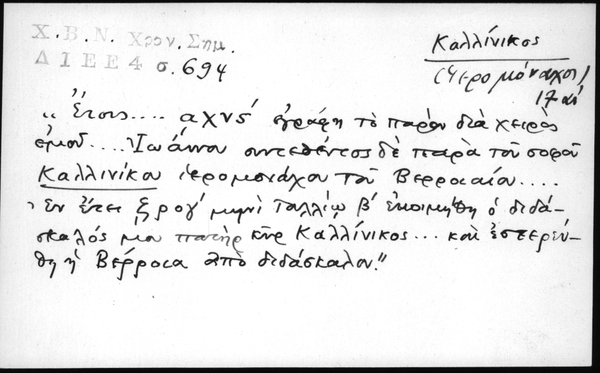 Χ.Β.Ν. Χρον. Σημ.
Δ Ι Ε Ε 4 σ. 694
Καλλίνικος
(Ἱερομόναχος)
17 αἰ
„Ἔτους.... αχνς´ ἐγράφη τὸ παρὸν διὰ χειρὸς
ἐμοῦ.... Ἰωάννου συντεθέντος δὲ παρὰ τοῦ σοφοῦ
Καλλινίκου ἱερομονάχου τοῦ Βερροιαίου....
Ἐν ἔτει ζρογ´ μηνὶ Ἰουλλίῳ β´ ἐκοιμήθη ὁ διδά-
σκαλός μου πατὴρ Καλλίνικος... καὶ ἐστερεύ-
θη ἡ Βέρροια ἀπὸ διδάσκαλον."